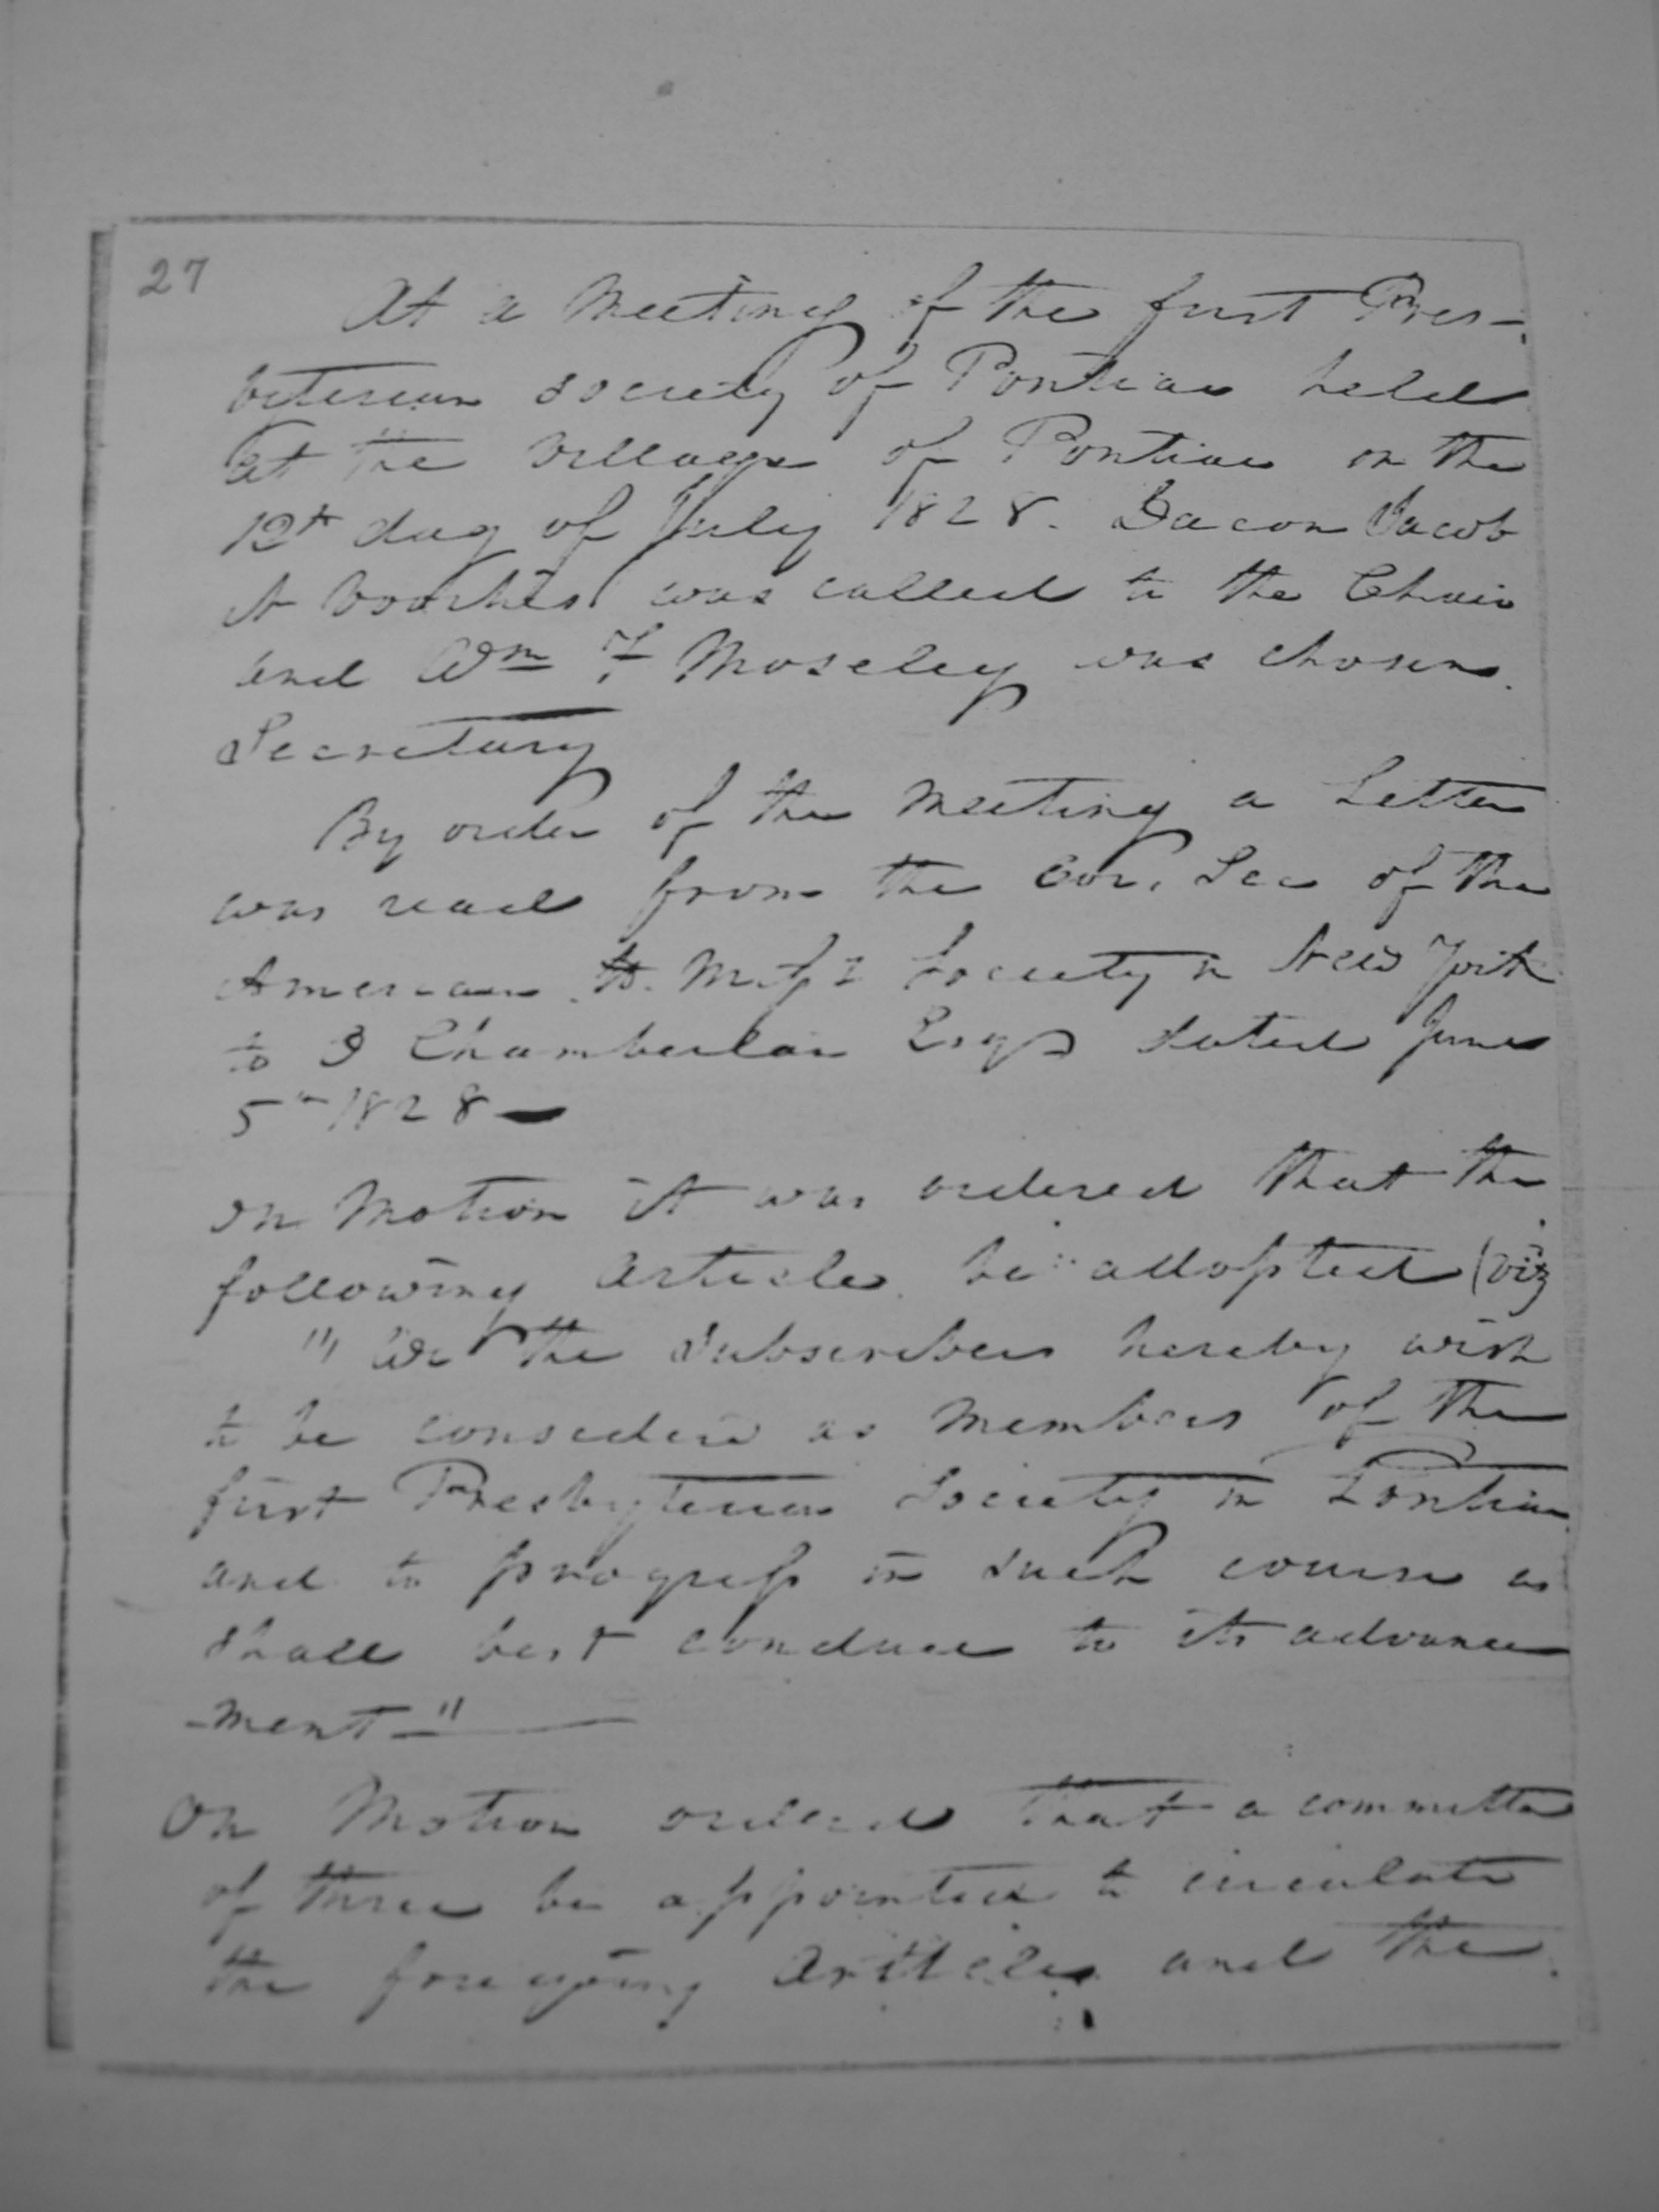 27
At a Meeting of the first Pres-
biterean Society of Pontiac held
at the Village of Pontiac on the
12th day of July 1828. Deacon Jacob
N Voorhies was called to the Chair
and Wm F Moseley was chosen
Secretary
By order of the Meeting a Letter
was read from the Cor. Sec of the
American H. Miss Society in New York
to Chamberlain Esqr dated June
5th 1828 —
on Motion it was ordered that the
following Article be adopted (viz
"We the Subscribers hereby wish
to be considered as Members of the
first Presbyterian Society in Pontiac
and to progress in such course as
shall best conduce to its advance
-ment-"
On Motion ordered that a committee
of three be appointed to circulate
the foregoing Article and the